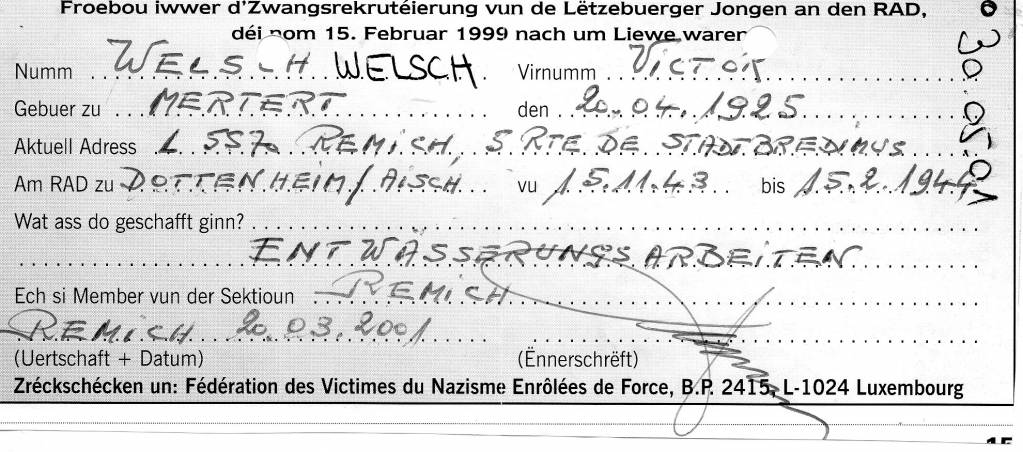 Froebou iwwer d'Zwangsrekrutéierung vun de Lëtzebuerger Jongen an den RAD,
déi nom 15. Februar 1999 nach um Liewe waren
Numm WELSCH WELSCH Virnumm VICTOR
Gebuer zu MERTERT den 20.04.1925
Aktuell Adress L 5570 REMICH, 5 RTE DE STADTBREDIMUS
Am RAD zu DOTTENHEIM/AISCH vu 15.11.43 bis 15.2.1944
Wat ass do geschafft ginn?
ENTWÄSSERUNGSARBEITEN
Ech si Member vun der Sektioun REMICH
REMICH 20.03.2001
(Uertschaft + Datum) (Ënnerschrëft)
Zréckschécken un: Fédération des Victimes du Nazisme Enrôlées de Force, B.P. 2415, L-1024 Luxembourg
30.05.01